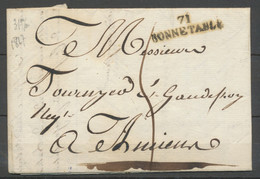 71
BONNETABLE
A Messieurs
Tournyer & Gaudefroy
Negts
a Amiens